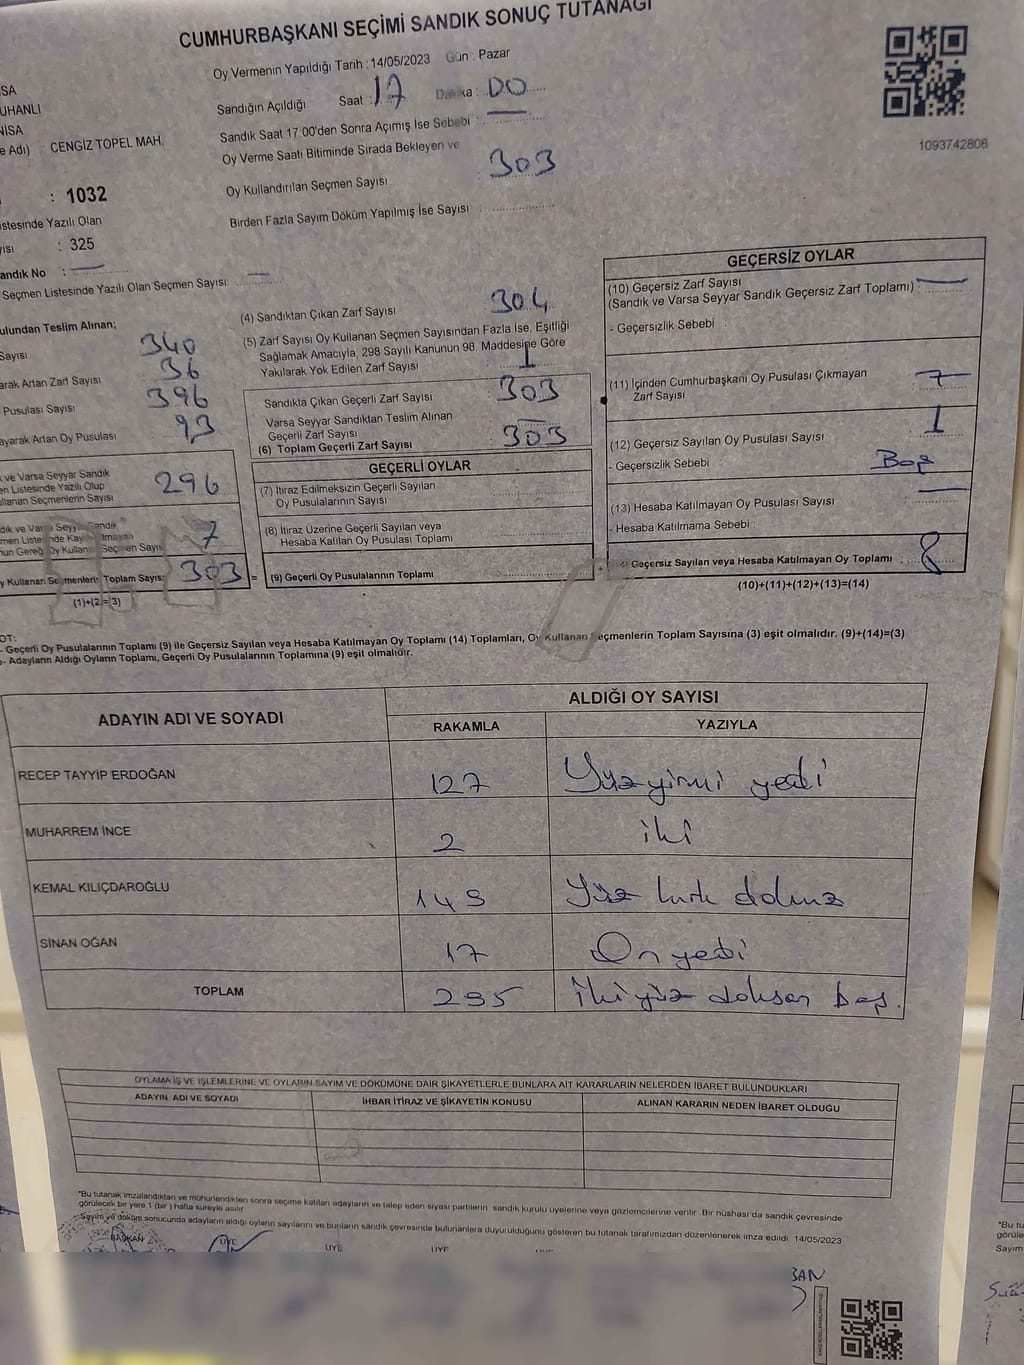 CUMHURBAŞKANI SEÇİMİ SANDIK SONUÇ TUTANAĞI
Oy Vermenin Yapıldığı Tarih : 14/05/2023 Gün : Pazar
Sandığın Açıldığı Saat : 17 Dakika : 00
Sandık Saat 17.00'den Sonra Açılmış İse Sebebi :
Oy Verme Saati Bitiminde Sırada Bekleyen ve
Oy Kullandırılan Seçmen Sayısı 303
Birden Fazla Sayım Döküm Yapılmış İse Sayısı :
1093742808
SA
UHANLI
NİSA
e Adı) CENGİZ TOPEL MAH.
: 1032
istesinde Yazılı Olan
yısı : 325
andık No :
Seçmen Listesinde Yazılı Olan Seçmen Sayısı :
ulundan Teslim Alınan;
Sayısı 340
arak Artan Zarf Sayısı 36
Pusulası Sayısı 396
ayarak Artan Oy Pusulası 93
k ve Varsa Seyyar Sandık
en Listesinde Yazılı Olup
ullanan Seçmenlerin Sayısı 296
dık ve Varsa Seyyar Sandık
men Listesinde Kayıtlı Olmayıp
nun Gereği Oy Kullanan Seçmen Sayısı 7
y Kullanan Seçmenlerin Toplam Sayısı 303 =
(1)+(2)=(3)
(4) Sandıktan Çıkan Zarf Sayısı 304
(5) Zarf Sayısı Oy Kullanan Seçmen Sayısından Fazla İse, Eşitliği
Sağlamak Amacıyla, 298 Sayılı Kanunun 98. Maddesine Göre
Yakılarak Yok Edilen Zarf Sayısı 1
Sandıkta Çıkan Geçerli Zarf Sayısı 303
Varsa Seyyar Sandıktan Teslim Alınan
Geçerli Zarf Sayısı
(6) Toplam Geçerli Zarf Sayısı 303
GEÇERLİ OYLAR
(7) İtiraz Edilmeksizin Geçerli Sayılan
Oy Pusulalarının Sayısı
(8) İtiraz Üzerine Geçerli Sayılan veya
Hesaba Katılan Oy Pusulası Toplamı
(9) Geçerli Oy Pusulalarının Toplamı +
GEÇERSİZ OYLAR
(10) Geçersiz Zarf Sayısı
(Sandık ve Varsa Seyyar Sandık Geçersiz Zarf Toplamı) :
- Geçersizlik Sebebi :
(11) İçinden Cumhurbaşkanı Oy Pusulası Çıkmayan
Zarf Sayısı 7
(12) Geçersiz Sayılan Oy Pusulası Sayısı 1
- Geçersizlik Sebebi : Boş
(13) Hesaba Katılmayan Oy Pusulası Sayısı :
- Hesaba Katılmama Sebebi :
Geçersiz Sayılan veya Hesaba Katılmayan Oy Toplamı : 8
(10)+(11)+(12)+(13)=(14)
OT:
- Geçerli Oy Pusulalarının Toplamı (9) ile Geçersiz Sayılan veya Hesaba Katılmayan Oy Toplamı (14) Toplamları, Oy Kullanan Seçmenlerin Toplam Sayısına (3) eşit olmalıdır. (9)+(14)=(3)
- Adayların Aldığı Oyların Toplamı, Geçerli Oy Pusulalarının Toplamına (9) eşit olmalıdır.
ADAYIN ADI VE SOYADI ALDIĞI OY SAYISI
RAKAMLA YAZIYLA
RECEP TAYYİP ERDOĞAN 127 Yüzyirmi yedi
MUHARREM İNCE 2 iki
KEMAL KILIÇDAROĞLU 149 Yüz kırk dokuz
SİNAN OĞAN 17 On yedi
TOPLAM 295 ikiyüz doksan beş.
OYLAMA İŞ VE İŞLEMLERİNE VE OYLARIN SAYIM VE DÖKÜMÜNE DAİR ŞİKAYETLERLE BUNLARA AİT KARARLARIN NELERDEN İBARET BULUNDUKLARI
ADAYIN ADI VE SOYADI İHBAR İTİRAZ VE ŞİKAYETİN KONUSU ALINAN KARARIN NEDEN İBARET OLDUĞU
*Bu tutanak imzalandıktan ve mühürlendikten sonra seçime katılan adayların ve talep eden siyasi partilerin sandık kurulu üyelerine veya gözlemcilerine verilir. Bir nüshası da sandık çevresinde
görülecek bir yere 1 (bir) hafta süreyle asılır.
Sayım ve döküm sonucunda adayların aldığı oyların sayılarını ve bunların sandık çevresinde bulunanlara duyurulduğunu gösteren bu tutanak tarafımızdan düzenlenerek imza edildi. 14/05/2023
BAŞKAN ÜYE ÜYE ÜYE
BAN
*Bu tu
görüle
Sayım